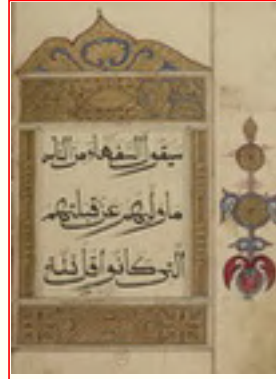 سيقول السفهاء من الناس
ما وليهم عن قبلتهم
التي كانوا قل لله